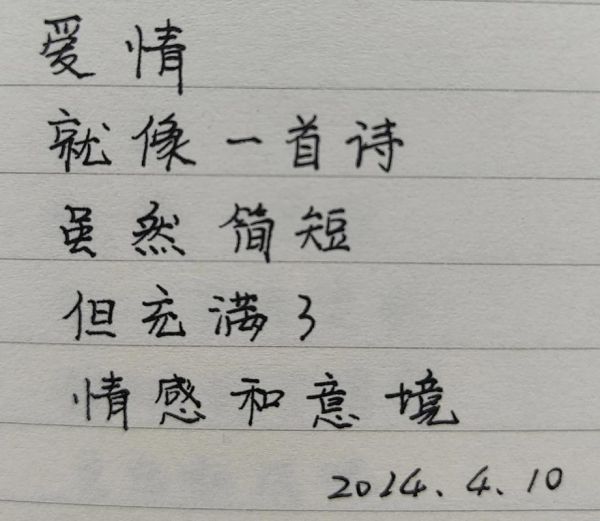 爱情
就像一首诗
虽然简短
但充满了
情感和意境
2024.4.10